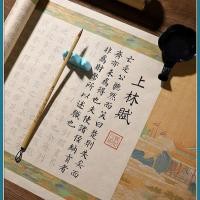 上林賦
亡是公听然而笑曰楚則失矣而
齊亦未為得也夫使諸侯納貢者
非為財幣所以述職也